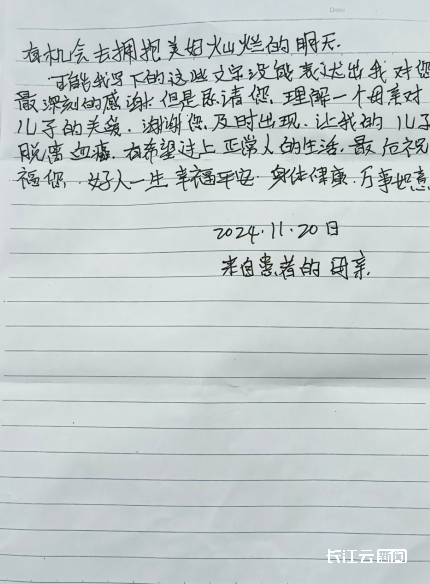 Date
有机会去拥抱美好灿烂的明天.
可能我写下的这些文字没能表达出我对您
最深刻的感谢.但是恳请您.理解一个母亲对
儿子的关爱.谢谢您及时出现.让我的儿子
脱离血癌.有希望过上正常人的生活.最后祝
福您.好人一生幸福平安.身体健康.万事如意
2024.11.20日
来自患者的母亲.
长江云新闻